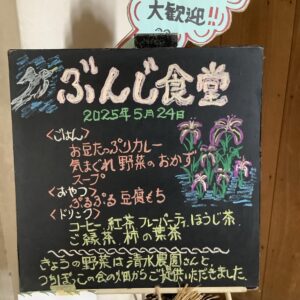 大歓迎!!
ぶんじ食堂
2025年5月24日
<ごはん>
お豆たっぷりカレー
気まぐれ野菜のおかず
スープ
<おやつ>
ぷるぷる豆腐もち
<ドリンク>
コーヒー、紅茶、フレーバーティ、ほうじ茶
ご縁茶、柿の葉茶
きょうの野菜は清水農園さんと、
つちぼっこの会の畑からご提供いただきました。